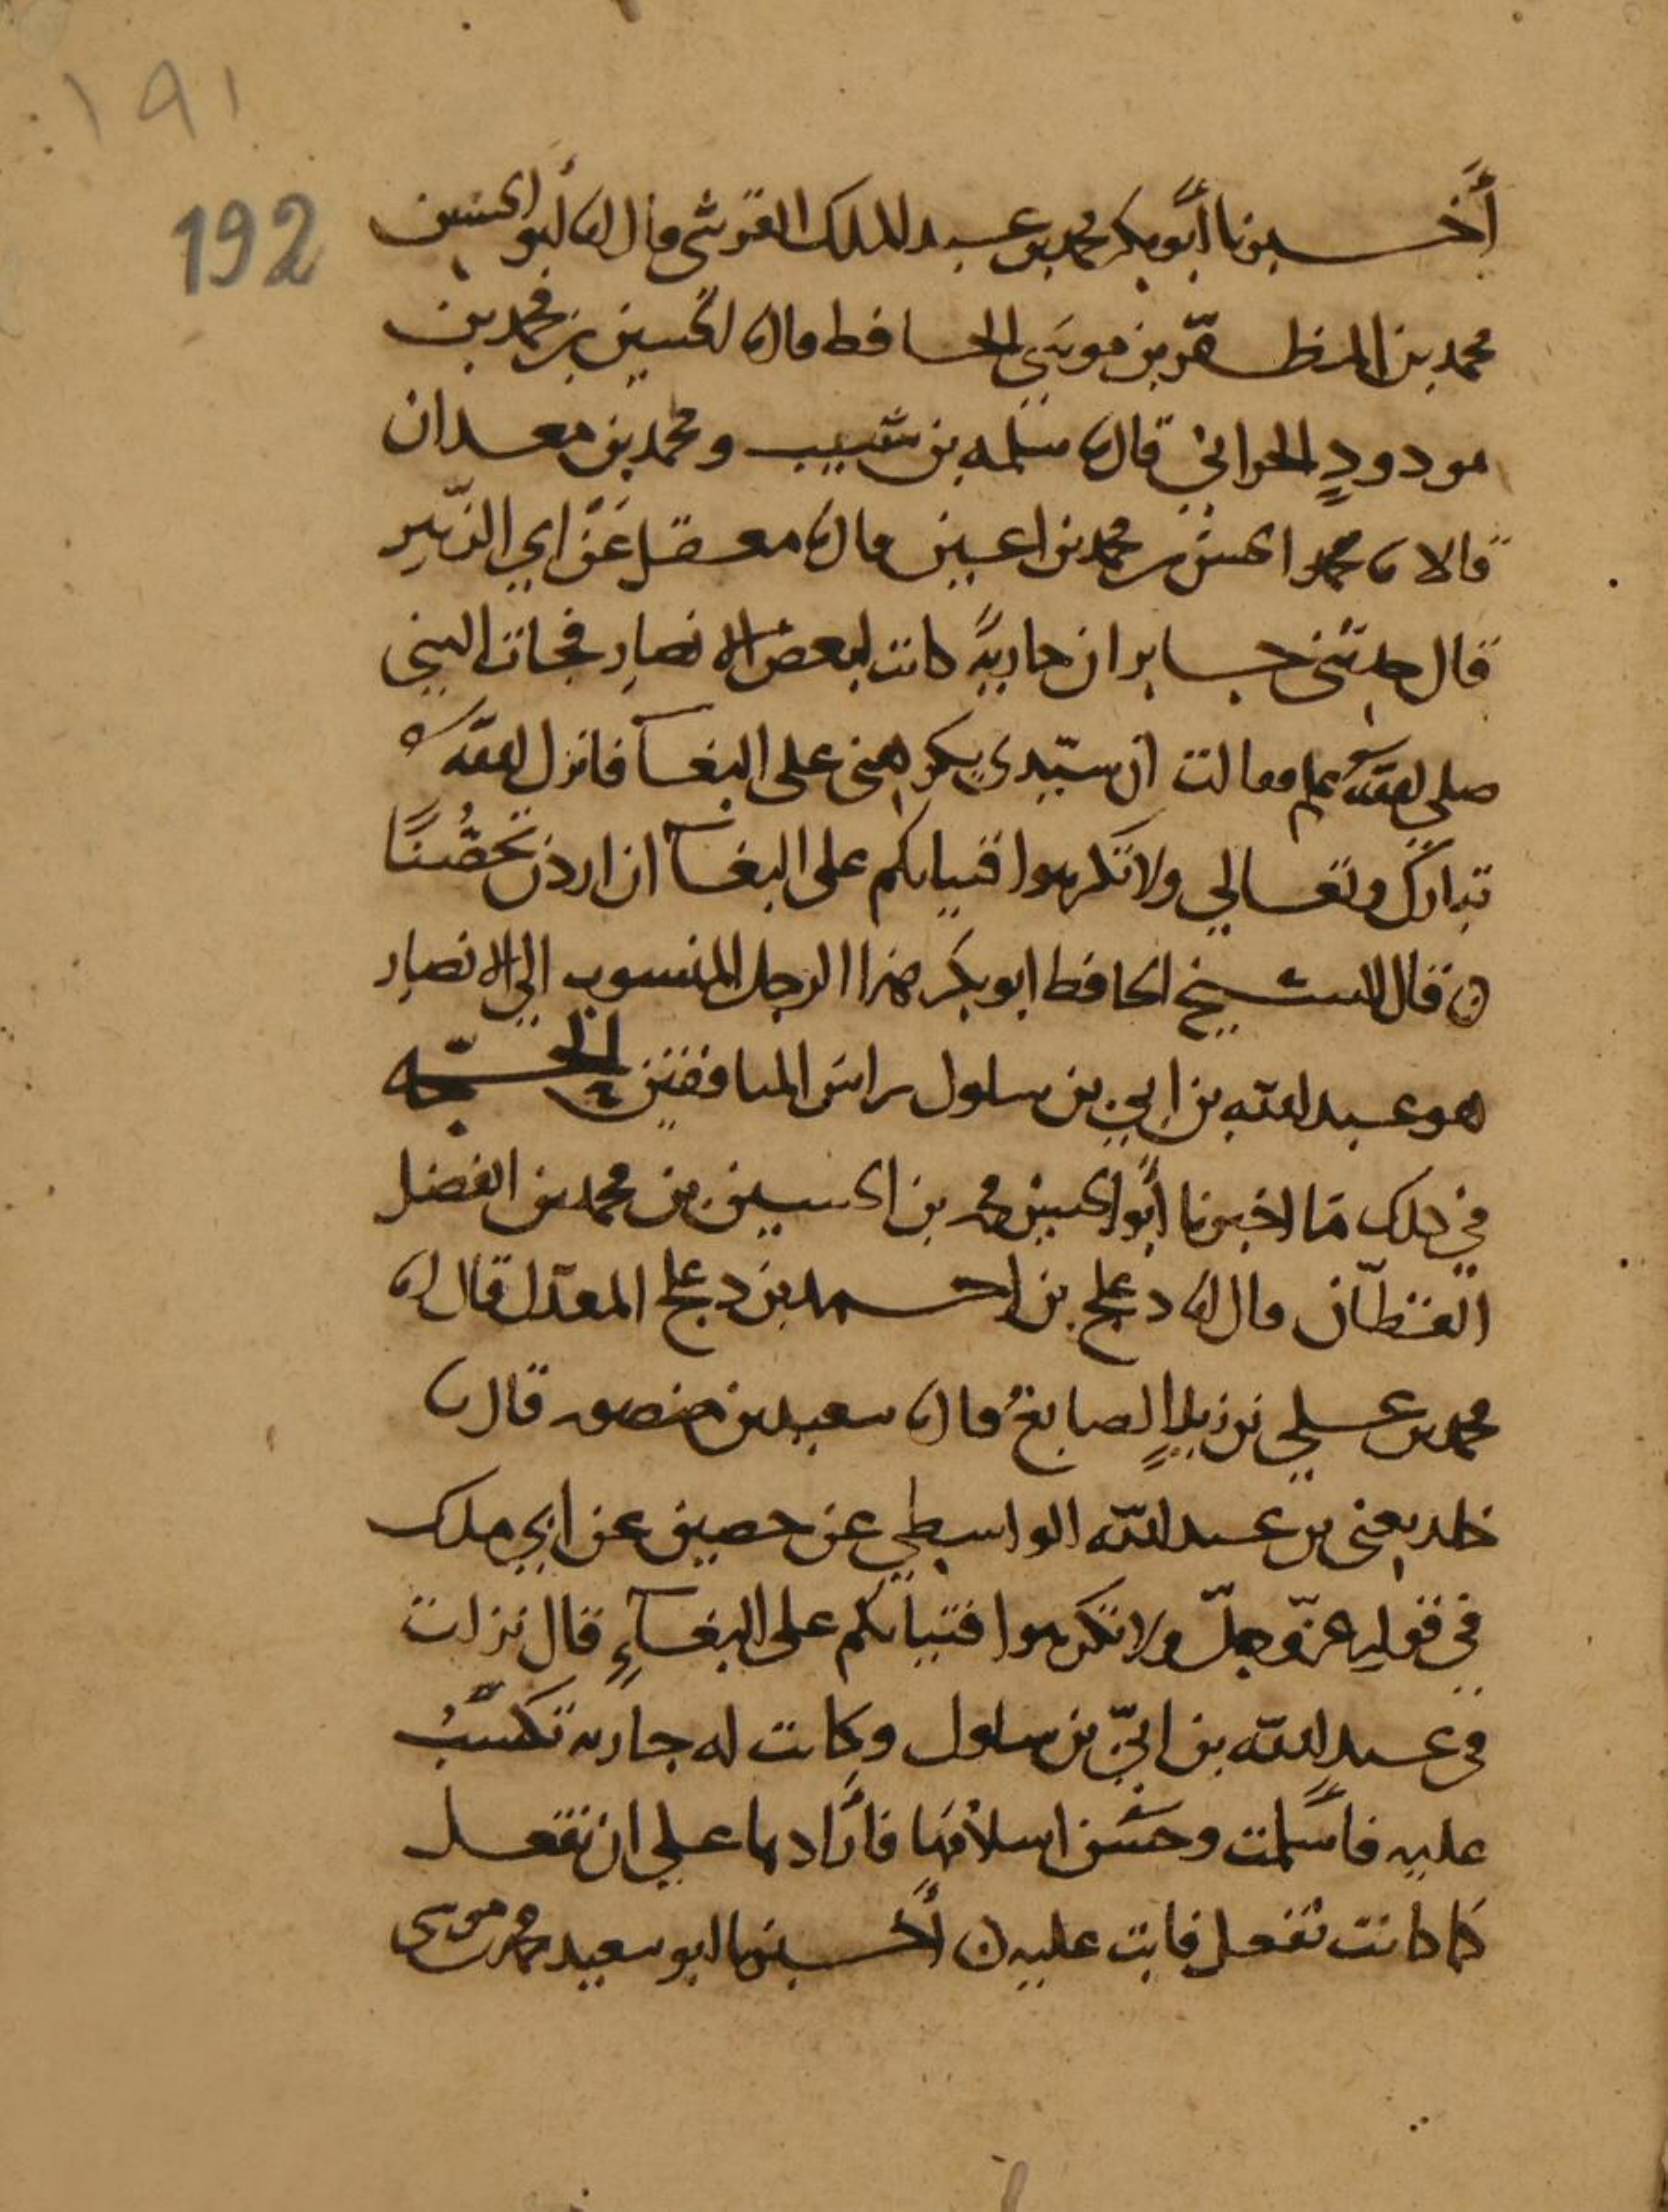 ١٩١
192
أخبرنا أبو بكر محمد بن عبد الملك القرشى قال انا أبو الحسين
محمد بن المظفر بن موسى الحافظ قال نا الحسين بن محمد بن
مودود الحراني قال نا سلمه بن شبيب ومحمد بن معدان
قالا نا محمد الحسن بن محمد بن اعين قال نا معقل عن ابي الزبير
قال حدثنى جابر ان جارية كانت لبعض الانصار فجات النبي
صلى الله علم فقالت ان سيدى يكرهنى على البغآ فانزل الله
تبارك وتعالي ولا تكرهوا فتياتكم على البغآ ان اردن تحصنا
ن قال الشيخ الحافظ ابو بكر هذا الرجل المنسوب الي الانصار
هو عبد الله بن ابي بن سلول راس المنافقين الحجه
في ذلك ما اخبرنا أبو الحسين محمد بن الحسين بن محمد بن الفضل
القطان قال انا دعلج بن احمد بن دعلج المعدل قال انا
محمد بن علي بن زيد الصايغ قال نا سعيد بن منصور قال نا
خلد يعنى بن عبد الله الواسطي عن حصين عن ابي ملك
في قوله عز وجل ولا تكرهوا فتياتكم على البغآء قال نزلت
فى عبد الله بن ابيّ بن سلول وكانت له جاريه تكسب
عليه فاسلمت وحسن اسلامها فأرادها علي ان تفعل
كما كانت تفعل فابت عليه ن أخبرنا ابو سعيد محمد بن موسى